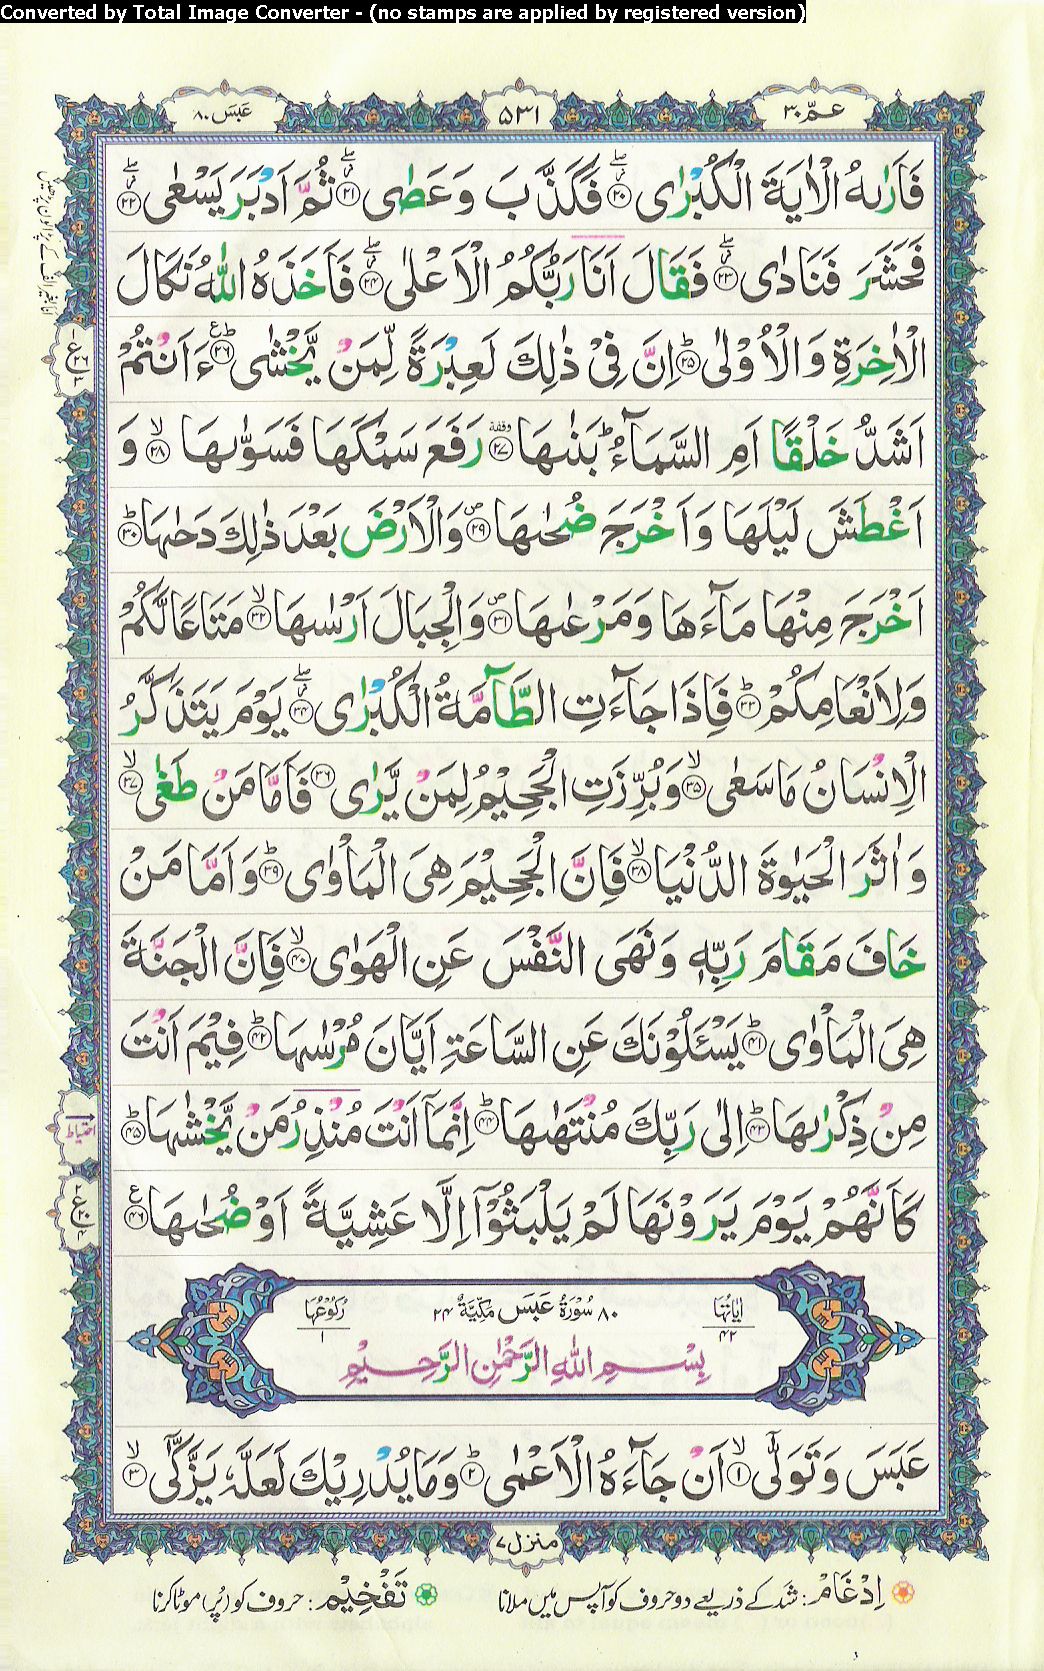 Converted by Total Image Converter - (no stamps are applied by registered version)
عَبَسَ ٨٠
٥٣١
عـمّ ٣٠
فَاَرٰىهُ الْاٰيَةَ الْكُبْرٰى ۖ۝۲۰ فَكَذَّبَ وَعَصٰى ۖ۝۲۱ ثُمَّ اَدْبَرَ يَسْعٰى ۖ۝۲۲
فَحَشَرَ فَنَادٰى ۖ۝۲۳ فَقَالَ اَنَا رَبُّكُمُ الْاَعْلٰى ۖ۝۲۴ فَاَخَذَهُ اللّٰهُ نَكَالَ
الْاٰخِرَةِ وَالْاُوْلٰى ؕ۝۲۵ اِنَّ فِيْ ذٰلِكَ لَعِبْرَةً لِّمَنْ يَّخْشٰى ؕ۝۲۶ ءَاَنْتُمْ
اَشَدُّ خَلْقًا اَمِ السَّمَآءُ ؕ بَنٰىهَا ۝۲۷ رَفَعَ سَمْكَهَا فَسَوّٰىهَا ۙ۝۲۸ وَ
اَغْطَشَ لَيْلَهَا وَاَخْرَجَ ضُحٰىهَا ۪۝۲۹ وَالْاَرْضَ بَعْدَ ذٰلِكَ دَحٰىهَا ؕ۝۳۰
اَخْرَجَ مِنْهَا مَآءَهَا وَمَرْعٰىهَا ۪۝۳۱ وَالْجِبَالَ اَرْسٰىهَا ۙ۝۳۲ مَتَاعًا لَّكُمْ
وَلِاَنْعَامِكُمْ ؕ۝۳۳ فَاِذَا جَآءَتِ الطَّآمَّةُ الْكُبْرٰى ۖ۝۳۴ يَوْمَ يَتَذَكَّرُ
الْاِنْسَانُ مَا سَعٰى ۙ۝۳۵ وَبُرِّزَتِ الْجَحِيْمُ لِمَنْ يَّرٰى ۝۳۶ فَاَمَّا مَنْ طَغٰى ۙ۝۳۷
وَاٰثَرَ الْحَيٰوةَ الدُّنْيَا ۙ۝۳۸ فَاِنَّ الْجَحِيْمَ هِيَ الْمَاْوٰى ؕ۝۳۹ وَاَمَّا مَنْ
خَافَ مَقَامَ رَبِّهٖ وَنَهَى النَّفْسَ عَنِ الْهَوٰى ۙ۝۴۰ فَاِنَّ الْجَنَّةَ
هِيَ الْمَاْوٰى ؕ۝۴۱ يَسْـَٔلُوْنَكَ عَنِ السَّاعَةِ اَيَّانَ مُرْسٰىهَا ؕ۝۴۲ فِيْمَ اَنْتَ
مِنْ ذِكْرٰىهَا ؕ۝۴۳ اِلٰى رَبِّكَ مُنْتَهٰىهَا ؕ۝۴۴ اِنَّمَآ اَنْتَ مُنْذِرُ مَنْ يَّخْشٰىهَا ؕ۝۴۵
كَاَنَّهُمْ يَوْمَ يَرَوْنَهَا لَمْ يَلْبَثُوْٓا اِلَّا عَشِيَّةً اَوْ ضُحٰىهَا ۝۴۶
اٰيَاتُهَا ٤٢
٨٠ سُوْرَةُ عَبَسَ مَكِّيَّةٌ ٢٤
رُكُوْعُهَا ١
بِسْمِ اللّٰهِ الرَّحْمٰنِ الرَّحِيْمِ
عَبَسَ وَتَوَلّٰٓى ۙ۝۱ اَنْ جَآءَهُ الْاَعْمٰى ؕ۝۲ وَمَا يُدْرِيْكَ لَعَلَّهٗ يَزَّكّٰٓى ۙ۝۳
احتیاط
منزل ٧
اِدْغَامْ: شد کے ذریعے دو حروف کو آپس میں ملانا
تَفْخِيْمْ: حروف کو (پُر) موٹا کرنا